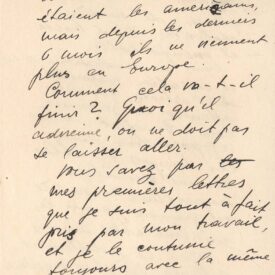 étaient les américains,
mais depuis les derniers
6 mois ils ne viennent
plus en Europe.
Comment cela va-t-il
finir ? Quoi qu'il
advienne, on ne doit pas
se laisser aller.
Vous savez par
mes premières lettres
que je suis tout à fait
pris par mon travail,
et je le continue
toujours avec la même